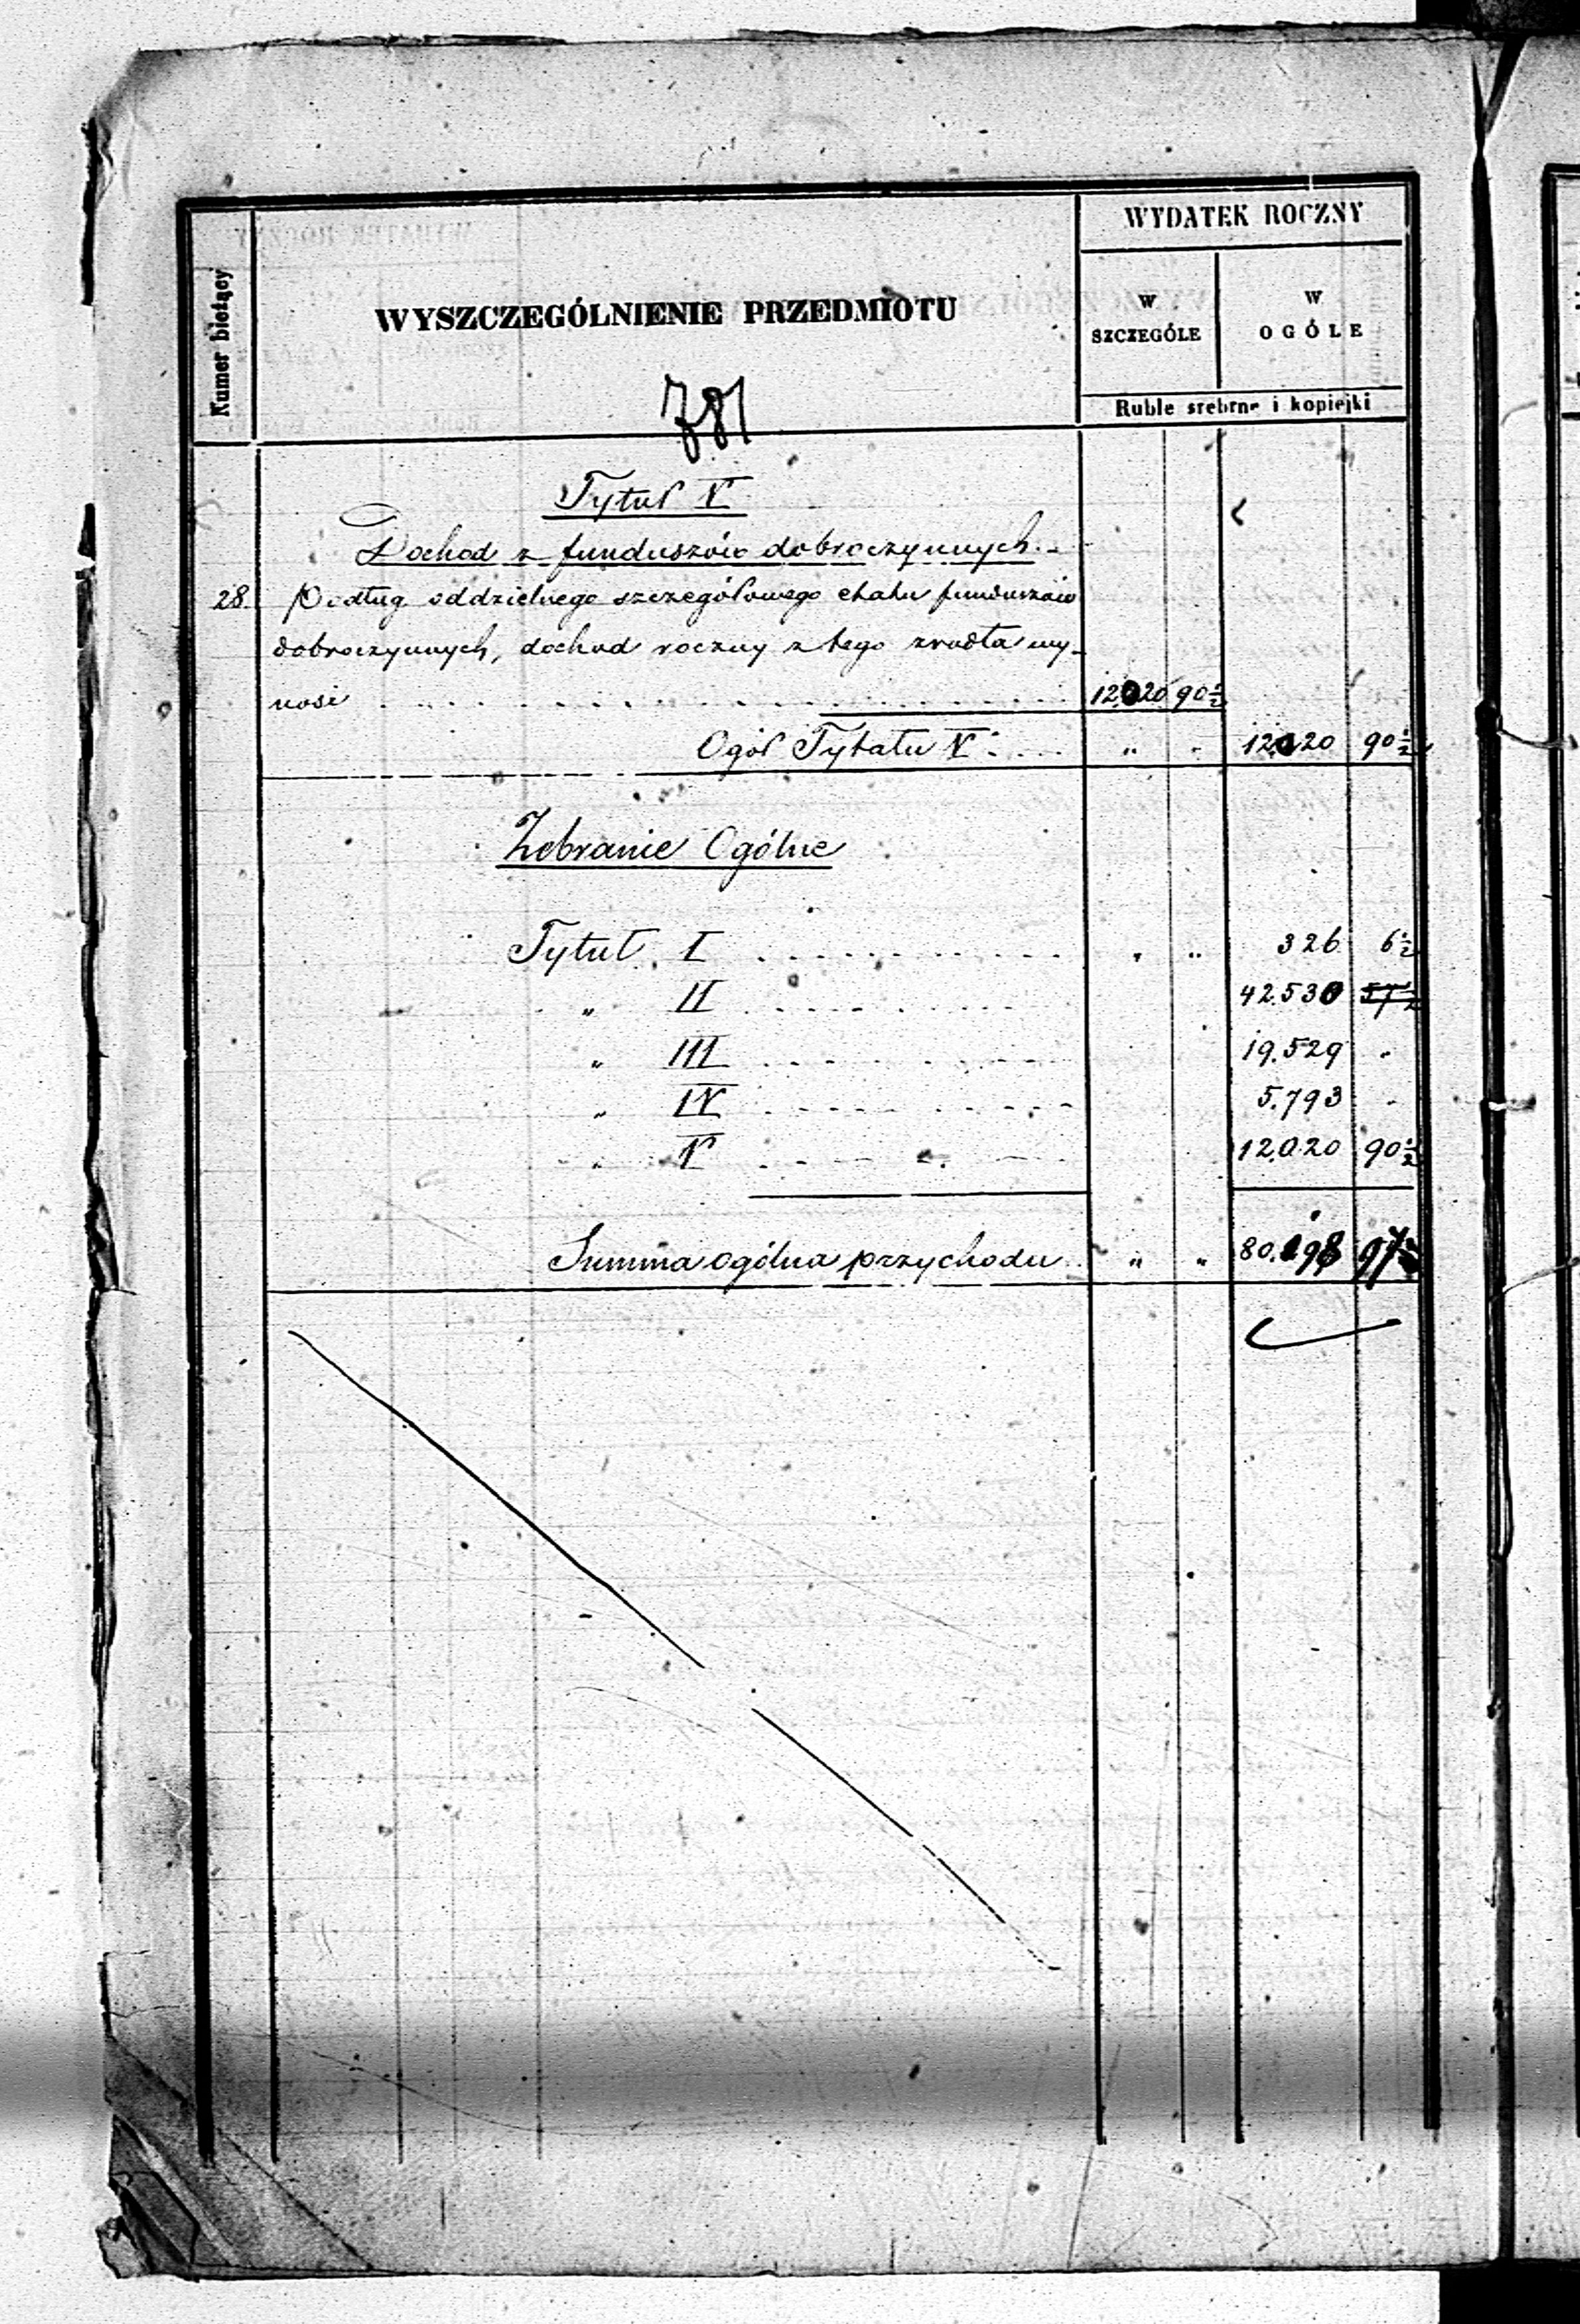 Numer bieżący
WYSZCZEGÓLNIENIE PRZEDMIOTU
WYDATEK ROCZNY
W SZCZEGÓLE
W OGÓLE
Ruble srebrne i kopiejki
781
Tytuł V
Dochod z funduszów dobroczynnych.-
28. Podług oddzielnego szczegółowego etatu funduszów
dobroczynnych, dochod roczny z tego zrodła wy-
nosi 12020 90½
Ogół Tytułu V: „ „ 12.020 90½
Zebranie Ogólne
Tytuł I „ „ 326 6½
„ II 42.530
„ III 19.529 „
„ IV 5.793 „
„ V 12.020 90½
Summa ogólna przychodu „ „ 80.198 97